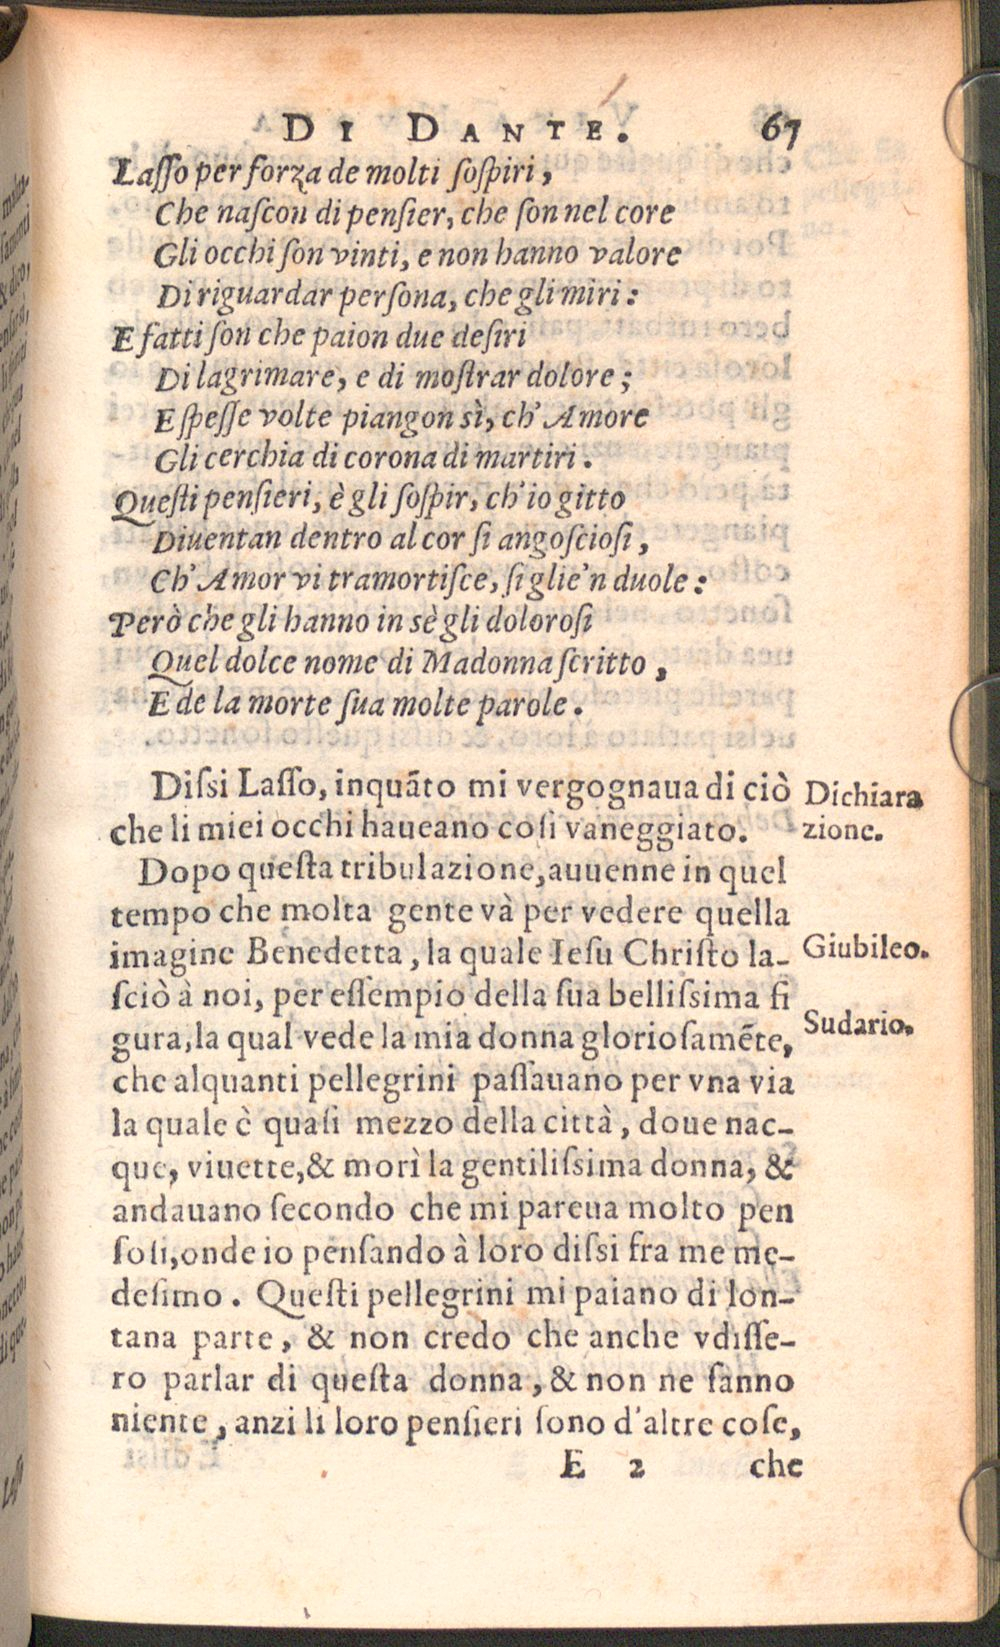 DI DANTE. 67
Lasso per forza de molti sospiri,
Che nascon di pensier, che son nel core
Gli occhi son vinti, e non hanno valore
Di riguardar persona, che gli miri:
E fatti son che paion due desiri
Di lagrimare, e di mostrar dolore;
E spesse volte piangon sì, ch' Amore
Gli cerchia di corona di martiri.
Questi pensieri, è gli sospir, ch'io gitto
Diuentan dentro al cor si angosciosi,
Ch' Amor vi tramortisce, si glie'n duole:
Però che gli hanno in sè gli dolorosi
Quel dolce nome di Madonna scritto,
E de la morte sua molte parole.
Dissi Lasso, inquãto mi vergognaua di ciò
che li miei occhi haueano così vaneggiato.
Dichiara
zione.
Dopo questa tribulazione, auuenne in quel
tempo che molta gente và per vedere quella
imagine Benedetta, la quale Iesu Christo la-
Giubileo.
sciò à noi, per essempio della sua bellissima fi
gura, la qual vede la mia donna gloriosamẽte,
Sudario.
che alquanti pellegrini passauano per vna via
la quale è quasi mezzo della città, doue nac-
que, viuette, & morì la gentilissima donna, &
andauano secondo che mi pareua molto pen
sosi, onde io pensando à loro dissi fra me me-
desimo. Questi pellegrini mi paiano di lon-
tana parte, & non credo che anche vdisse-
ro parlar di questa donna, & non ne sanno
niente, anzi li loro pensieri sono d'altre cose,
E 2 che